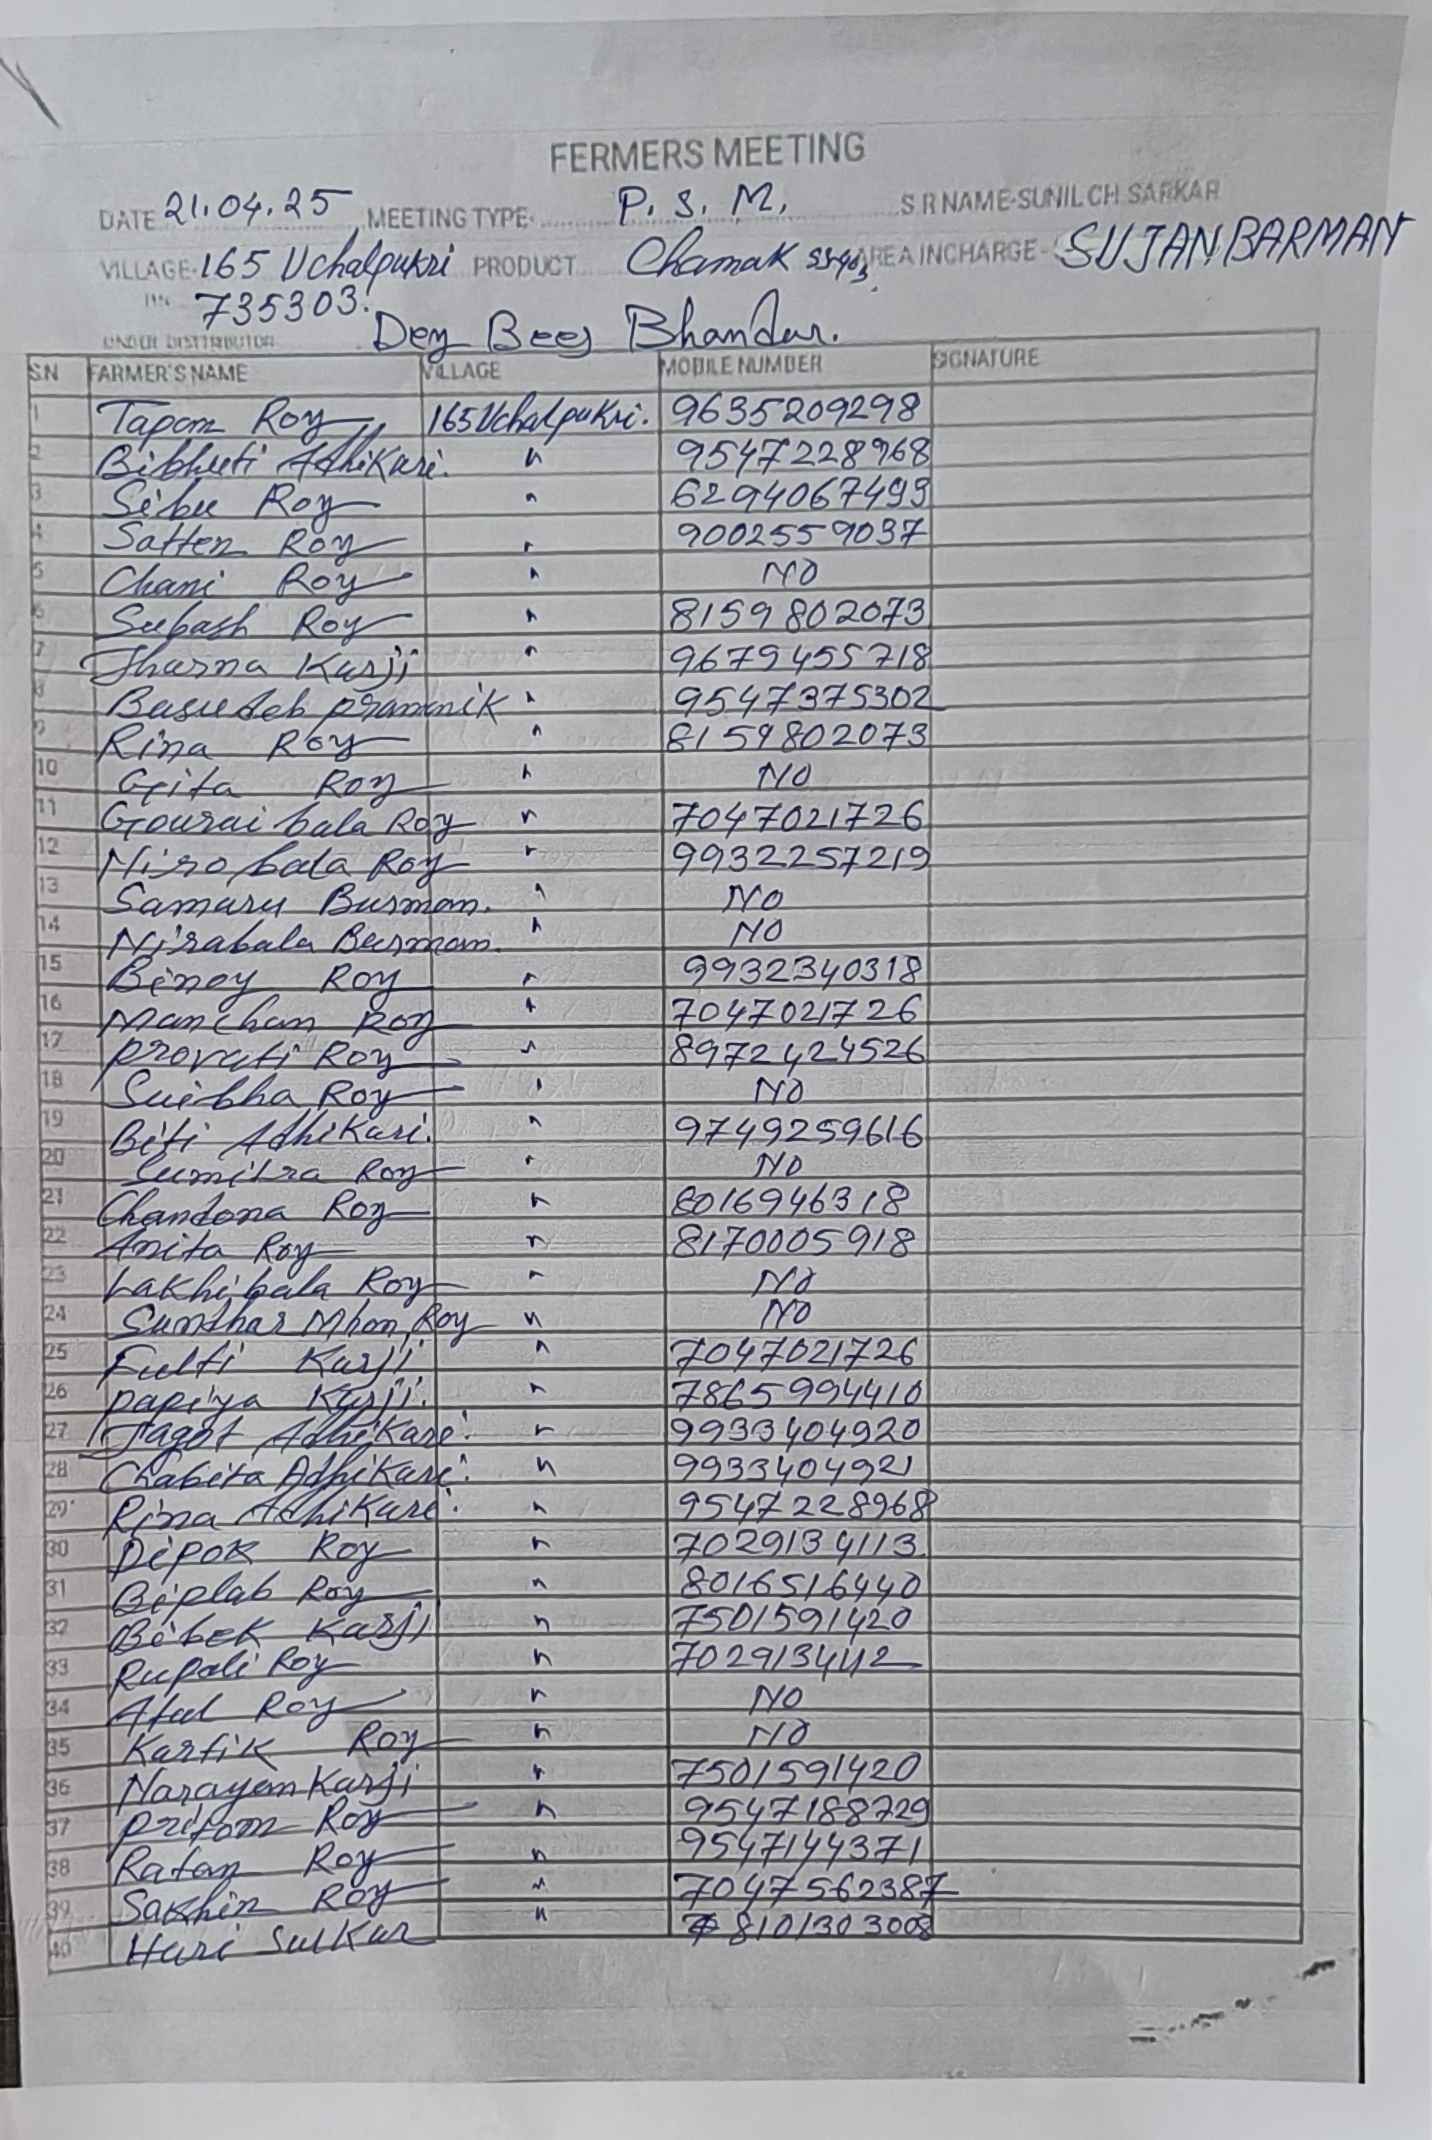 FERMERS MEETING
DATE 21.04.25 MEETING TYPE- P. S. M. S R NAME-SUNIL CH SARKAR
VILLAGE- 165 Uchalpukri PRODUCT Chamak AREA INCHARGE- SUJAN BARMAN
735303.
UNDER DISTTRIBUTOR Dey Beej Bhandar.
S.N FARMER'S NAME VILLAGE MOBILE NUMBER SIGNATURE
1 Tapom Roy 165 Uchalpukri. 9635209298
2 Bibhuti Adhikari. " 9547228968
3 Sibu Roy " 6294067499
4 Satten Roy " 9002559037
5 Chani Roy " NO
6 Subash Roy " 8159802073
7 Jharna Karji " 9679455718
8 Basudeb pramnik " 9547375302
9 Rina Roy " 8159802073
10 Gita Roy " NO
11 Gourai bala Roy " 7047021726
12 Niro bala Roy " 9932257219
13 Samaru Burmon. " NO
14 Nirabala Burmon. " NO
15 Binoy Roy " 9932340318
16 Manchan Roy " 7047021726
17 provati Roy " 8972424526
18 Suibha Roy " NO
19 Biti Adhikari. " 9749259616
20 Sumitra Roy " NO
21 Chandona Roy " 8016946318
22 Anita Roy " 8170005918
23 Lakhi bala Roy " NO
24 Sundhar Mhon Roy " NO
25 Fulti Karji " 7047021726
26 papiya Karji. " 7865994410
27 Jagot Adhikari. " 9933404920
28 Chabita Adhikari. " 9933404921
29 Rina Adhikari. " 9547228968
30 Dipok Roy " 7029134113
31 Biplab Roy " 8016516440
32 Bibek Karji " 7501591420
33 Rupali Roy " 7029134112
34 Atul Roy " NO
35 Kartik Roy " NO
36 Narayan Karji " 7501591420
37 pritom Roy " 9547188729
38 Ratan Roy " 9547144371
39 Sakhin Roy " 7047562387
40 Hari Sulkar " 8101303008